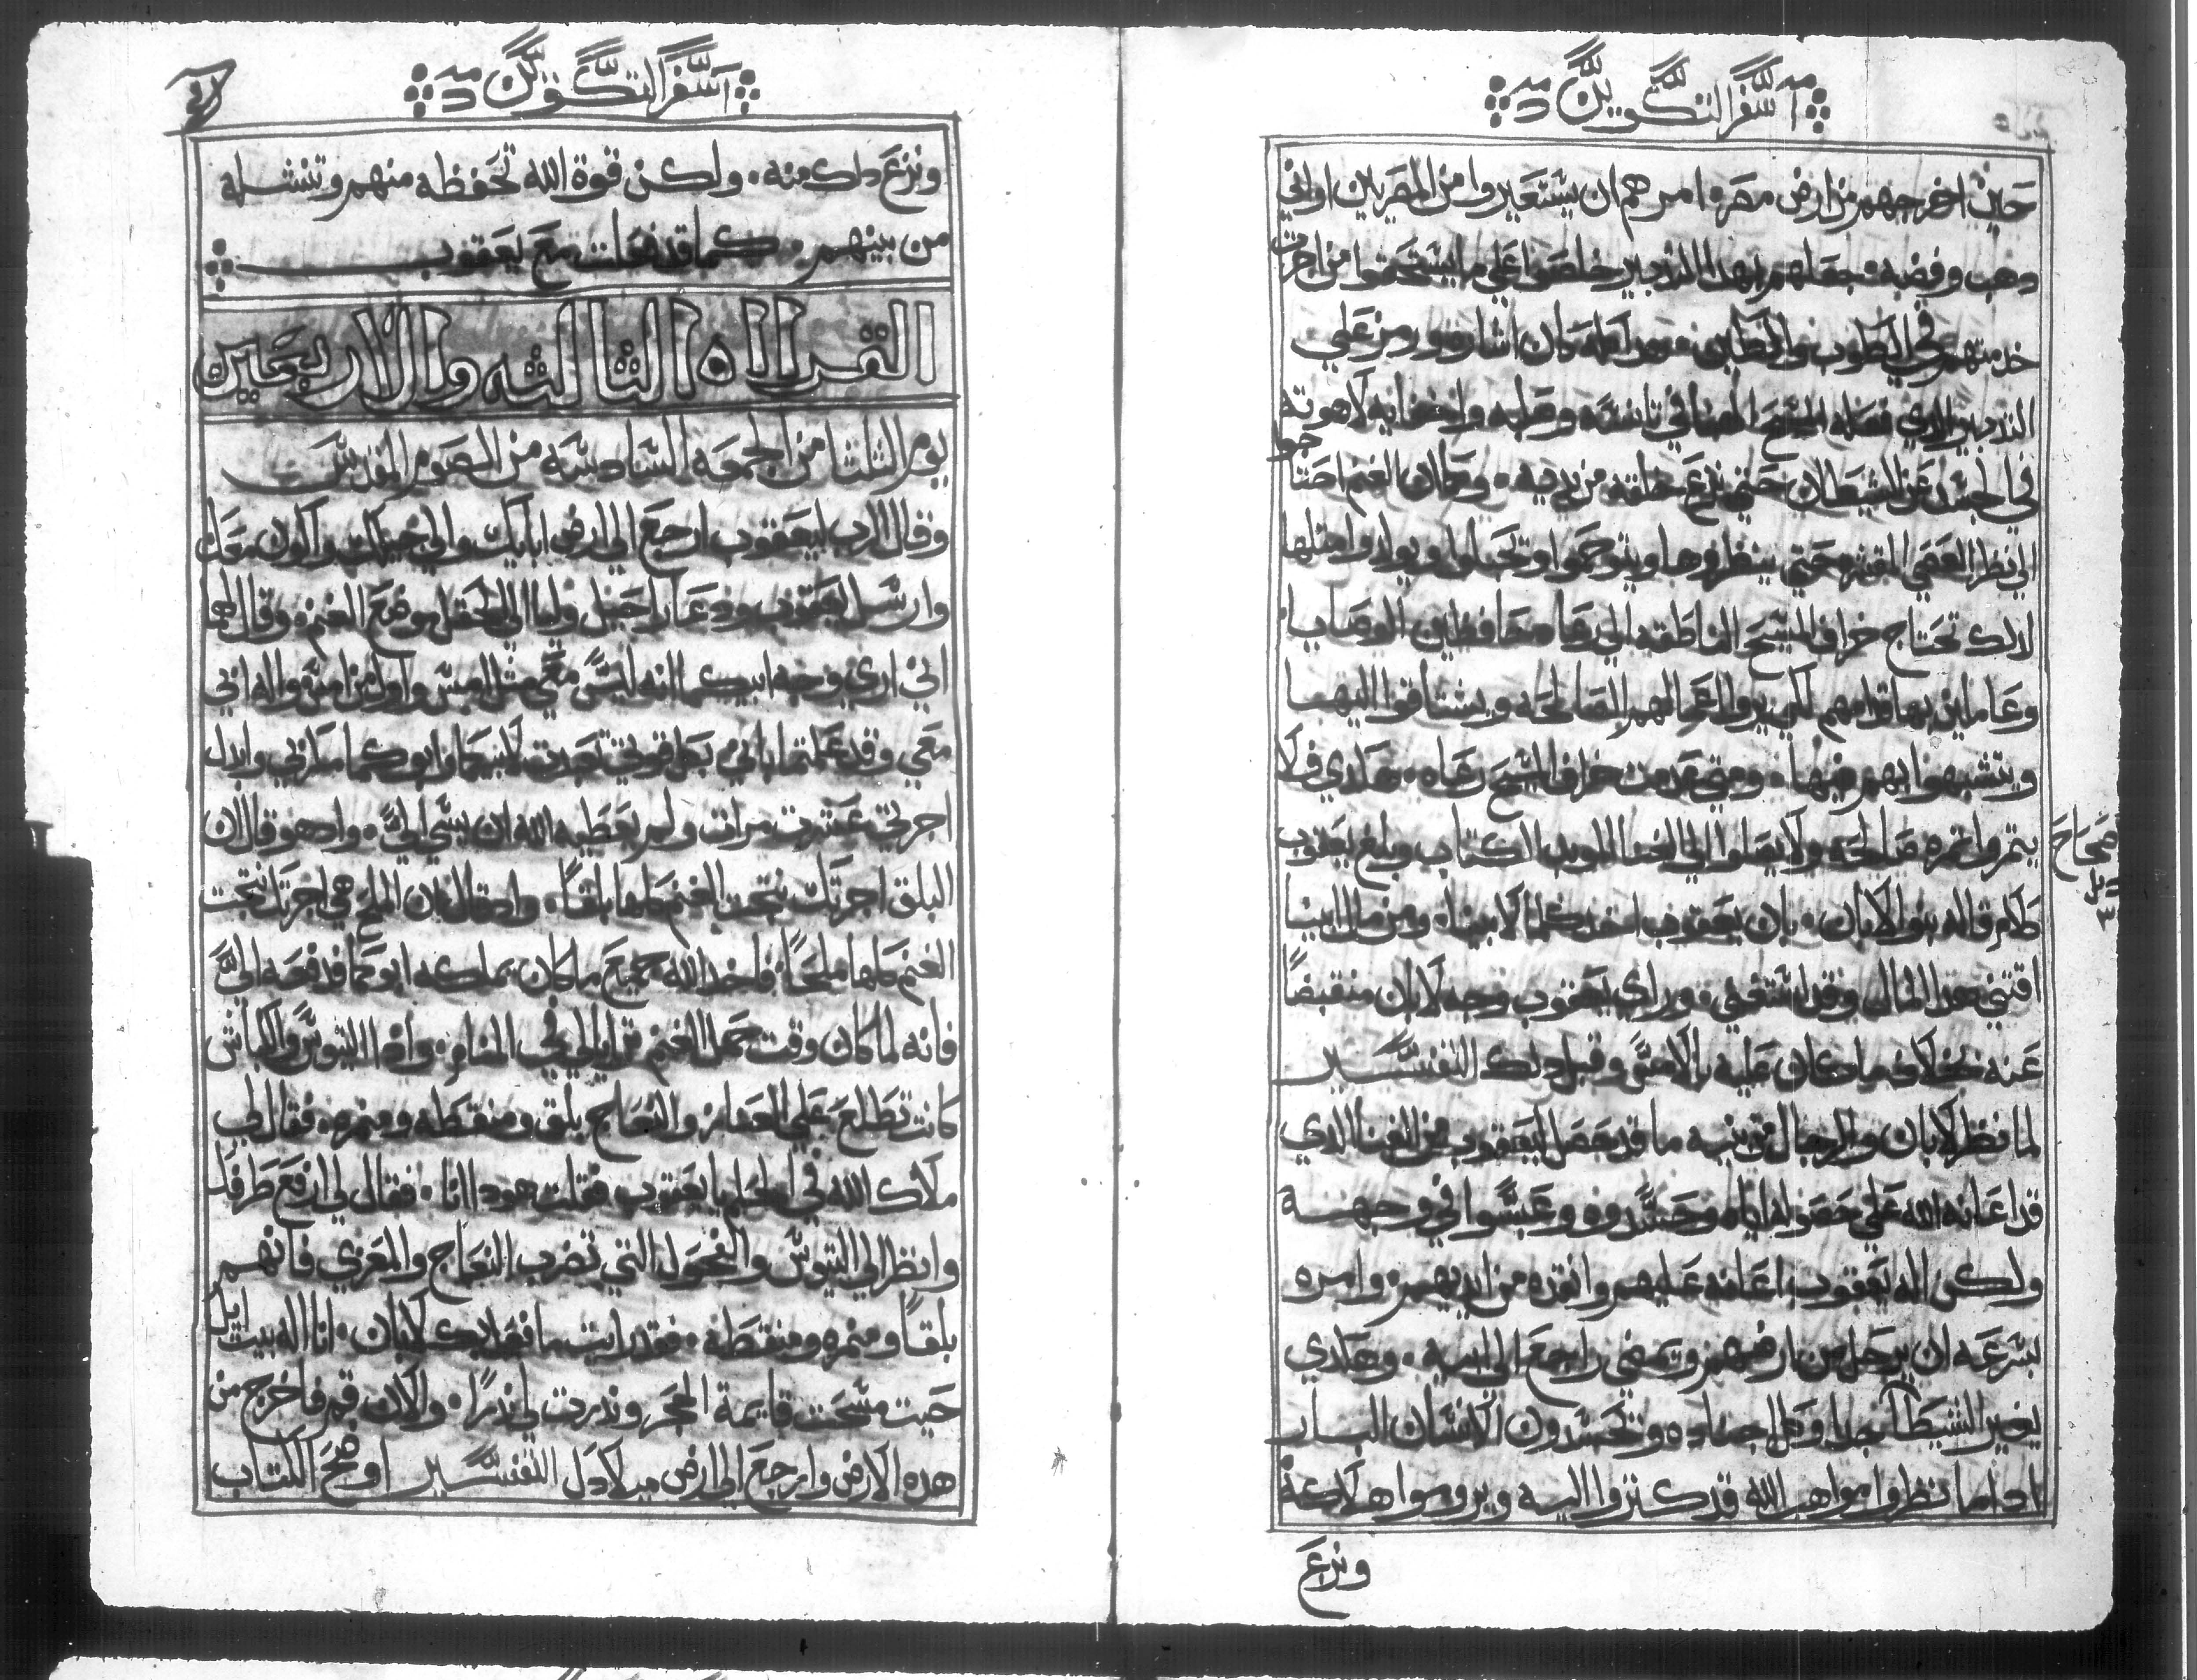 سفر التكوين
حين اخرجهم من ارض مصر ه امرهم ان يستعيروا من المصريين اواني
دهب وفضه • جعلهم بهدا التدبير خلصوا علي ما يستحقوا من اجرت
خدمتهم في الطوب والطين • وهدا كله كان اشاره ورمز علي
التدبير الدي فعله المسيح الهنا في تانسه وصلبه واخفايه لاهوته
في الجسد عن الشيطان حتي نزع خلقته من يديه • وكما ان الغنم احتا
جوا
الي نظر العصي المقشره حتي ينظروها ويتوحموا وتحبلوا ويولدوا مثلها
لدلك تحتاج خراف المسيح الناطقه الي رعاه حافظين الوصايا
وعاملين بها قدامهم لكي يروا اعمالهم الصالحه ويشتاقوا اليها
ويتشبهوا بهم فيها • ومتي عدمت خراف المسيح رعاه • هكدي فلا
يتمروا تمره صالحه ولا يصلوا الي الغنا الموبد الكتاب وبلغ يعقوب
صحاح
كلام قاله بنوا لابان • بان يعقوب اخد كلما لابينا • ومن مال ابينا
اقتني هدا المال وقد استغني • وراي يعقوب وجه لابان منقبضًا
عنه بخلاف ما كان عليه بالامس وقبل دلك التفسير
لما نظر لابان والرجال من بنيه ما قد حصل ليعقوب من الغنا الدي
قد اعانه الله علي حصوله اياه وحسدوه وعبسوا في وجهه
ولكن اله يعقوب اعانه عليهم وانقده من ايديهم • وامره
بسرعه ان يرحل من ارضهم ويمضي راجعا الي ابيه • وهكدي
يغير الشيطان جدا وكل اجناده وتحسدون الانسان البار
ادا ما نظروا مواهب الله قد كتروا اليه ويروموا هلاكه
ونزع
سفر التكوين
ونزع دلك منه • ولكن قوة الله تحفظه منهم وتنشله
من بينهم • كما قد فعلت مع يعقوب
القراه الثالثه والاربعين
يوم الثلثا من الجمعه السادسه من الصوم المقدس
وقال الرب ليعقوب ارجع الي ارض اباك والي جنسك واكون معك
وارسل يعقوب ودعا راحيل وليا الي الحقل موضع الغنم • وقال لهما
اني اري وجه ابيكما انه ليس معي مثل امس واول من امس واله ابي
معي وقد علمتما باني بكل قوتي تعبدت لابيكما وابوكما مكر بي وابدل
اجرتي عشرت مرات ولم يعطيه الله ان يسي الي • وادا هو قال ان
البلق اجرتك نتجت الغنم كلها بلقًا • وادا قال بان الملح هي اجرتك نتجت
الغنم كلها ملحًا • فاخد الله جميع ما كان يملكه ابوكما قد فعه اليَّ
فانه لما كان وقت حمل الغنم ترايا لي في المنام • وادا التيوس والكباش
كانت تطلع علي المعاز والنعاج بلق ومنقطه ومنمره • فقال لي
ملاك الله في الحلم يا يعقوب فقلت هودا انا • فقال لي ارفع طرفك
وانظر الي التيوس والفحوله التي تضرب النعاج والمعزي فانهم
بلقًا ومنمره ومنقطه • فقد رايت ما فعل بك لابان • انا اله بيت ايل
حيت مسحت قايمة الحجر وندرت لي ندرًا • والان قم فاخرج من
هده الارض وارجع الي ارض ميلادك التفسير اوضح الكتاب